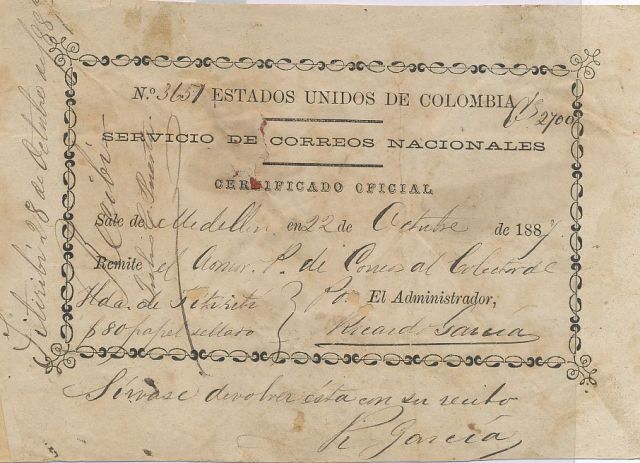 N.º 3657 ESTADOS UNIDOS DE COLOMBIA
SERVICIO DE CORREOS NACIONALES
CERTIFICADO OFICIAL
Sale de Medellin en 22 de Octubre de 1887
Remite el Admor. P. de Correos al Colector de
Hda. de Titiribí Po. El Administrador,
$ 80 papel sellado Ricardo García
Sírvase devolver ésta con su recibo
R García
Titiribí 28 de Octubre de 188
Recibí